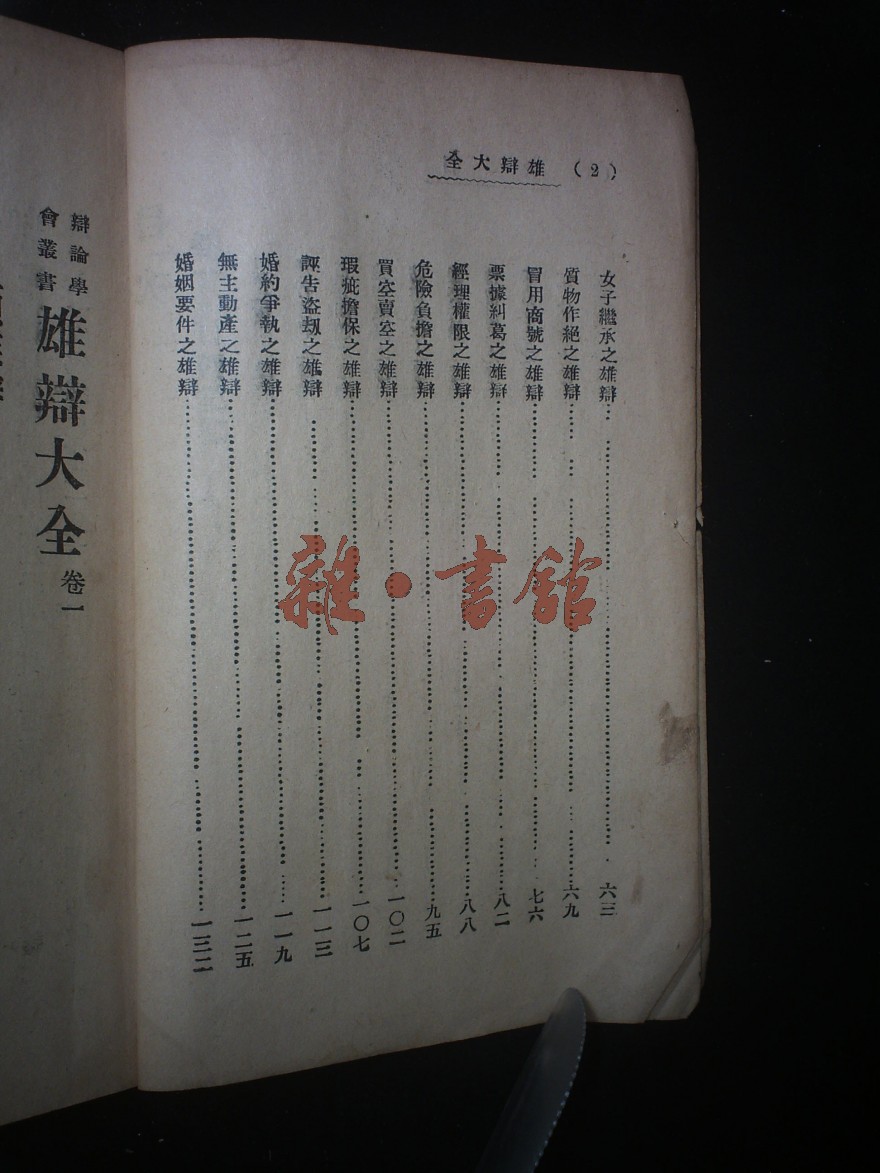 (2) 雄辯大全
女子繼承之雄辯……六三
質物作絕之雄辯……六九
冒用商號之雄辯……七六
票據糾葛之雄辯……八二
經理權限之雄辯……八八
危險負擔之雄辯……九五
買空賣空之雄辯……一〇二
瑕疵擔保之雄辯……一〇七
誣告盜劫之雄辯……一一三
婚約爭執之雄辯……一一九
無主動產之雄辯……一二五
婚姻要件之雄辯……一三二
辯論學
會叢書
雄辯大全 卷一
雜·書館